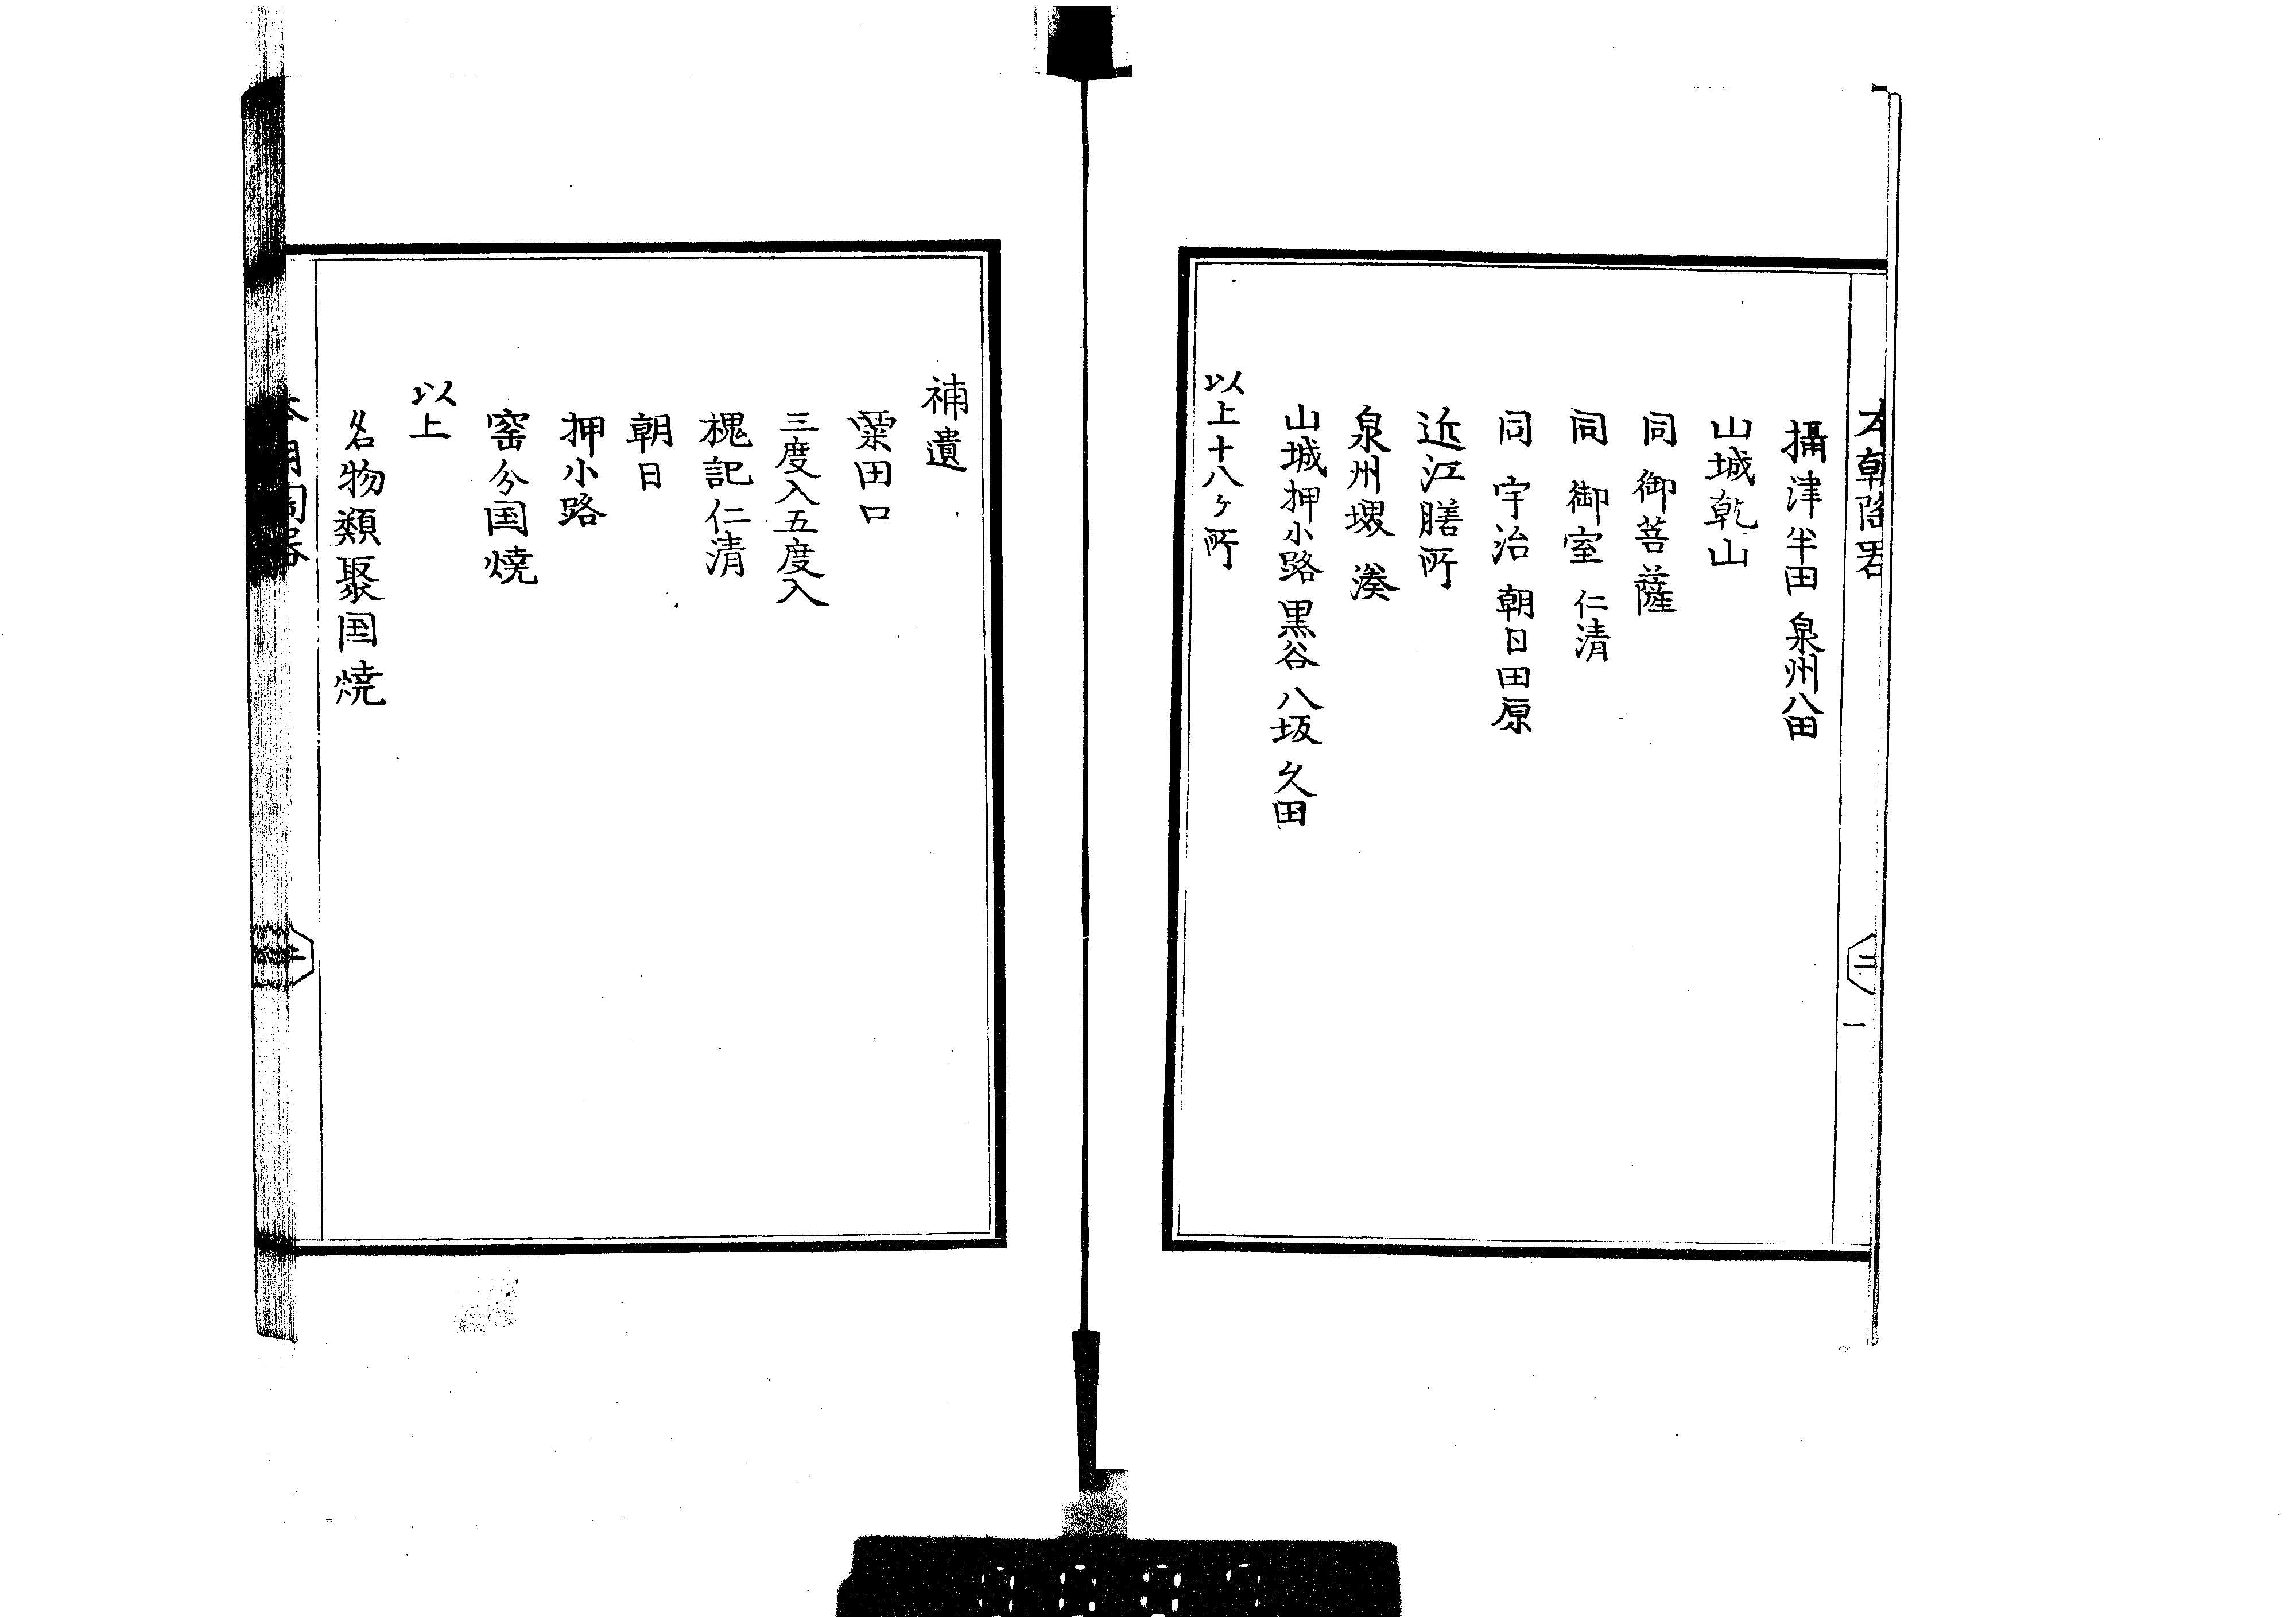 攝津半田 泉州八田
山城乾山
同 御菩薩
同 御室 仁清
同 宇治 朝日田原
近江膳所
泉州堺 湊
山城押小路 黒谷 八坂 久田
以上十八ヶ所
二
一
補遺
粟田口
三度入五度入
槐記仁清
朝日
押小路
窑分国焼
以上
名物類聚国焼